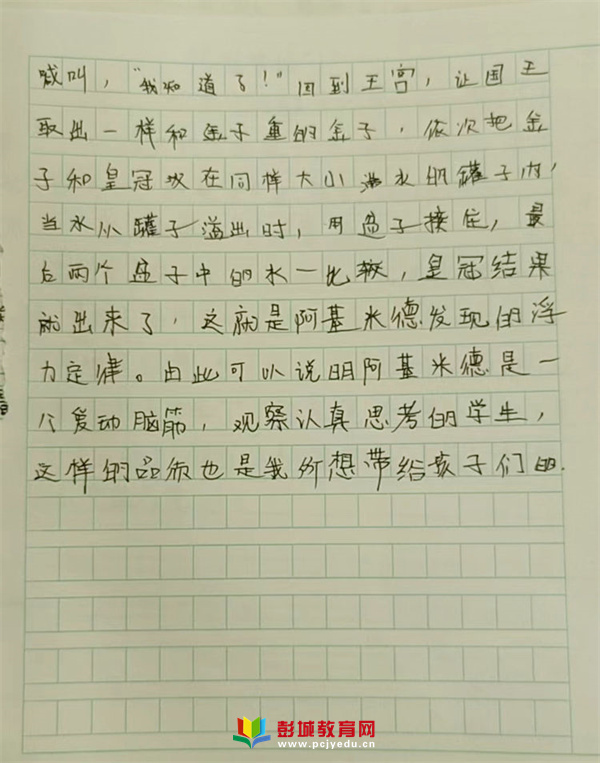 喊叫，“我知道了！”回到王宫，让国王
取出一样和金子重的金子，依次把金
子和皇冠放在同样大小满水的罐子内，
当水从罐子溢出时，用盆子接住，最
后两个盆子中的水一比较，皇冠结果
就出来了，这就是阿基米德发现的浮
力定律。由此可以说明阿基米德是一
个爱动脑筋，观察认真思考的学生，
这样的品质也是我所想带给孩子们的.
彭城教育网
www.pcjyedu.cn